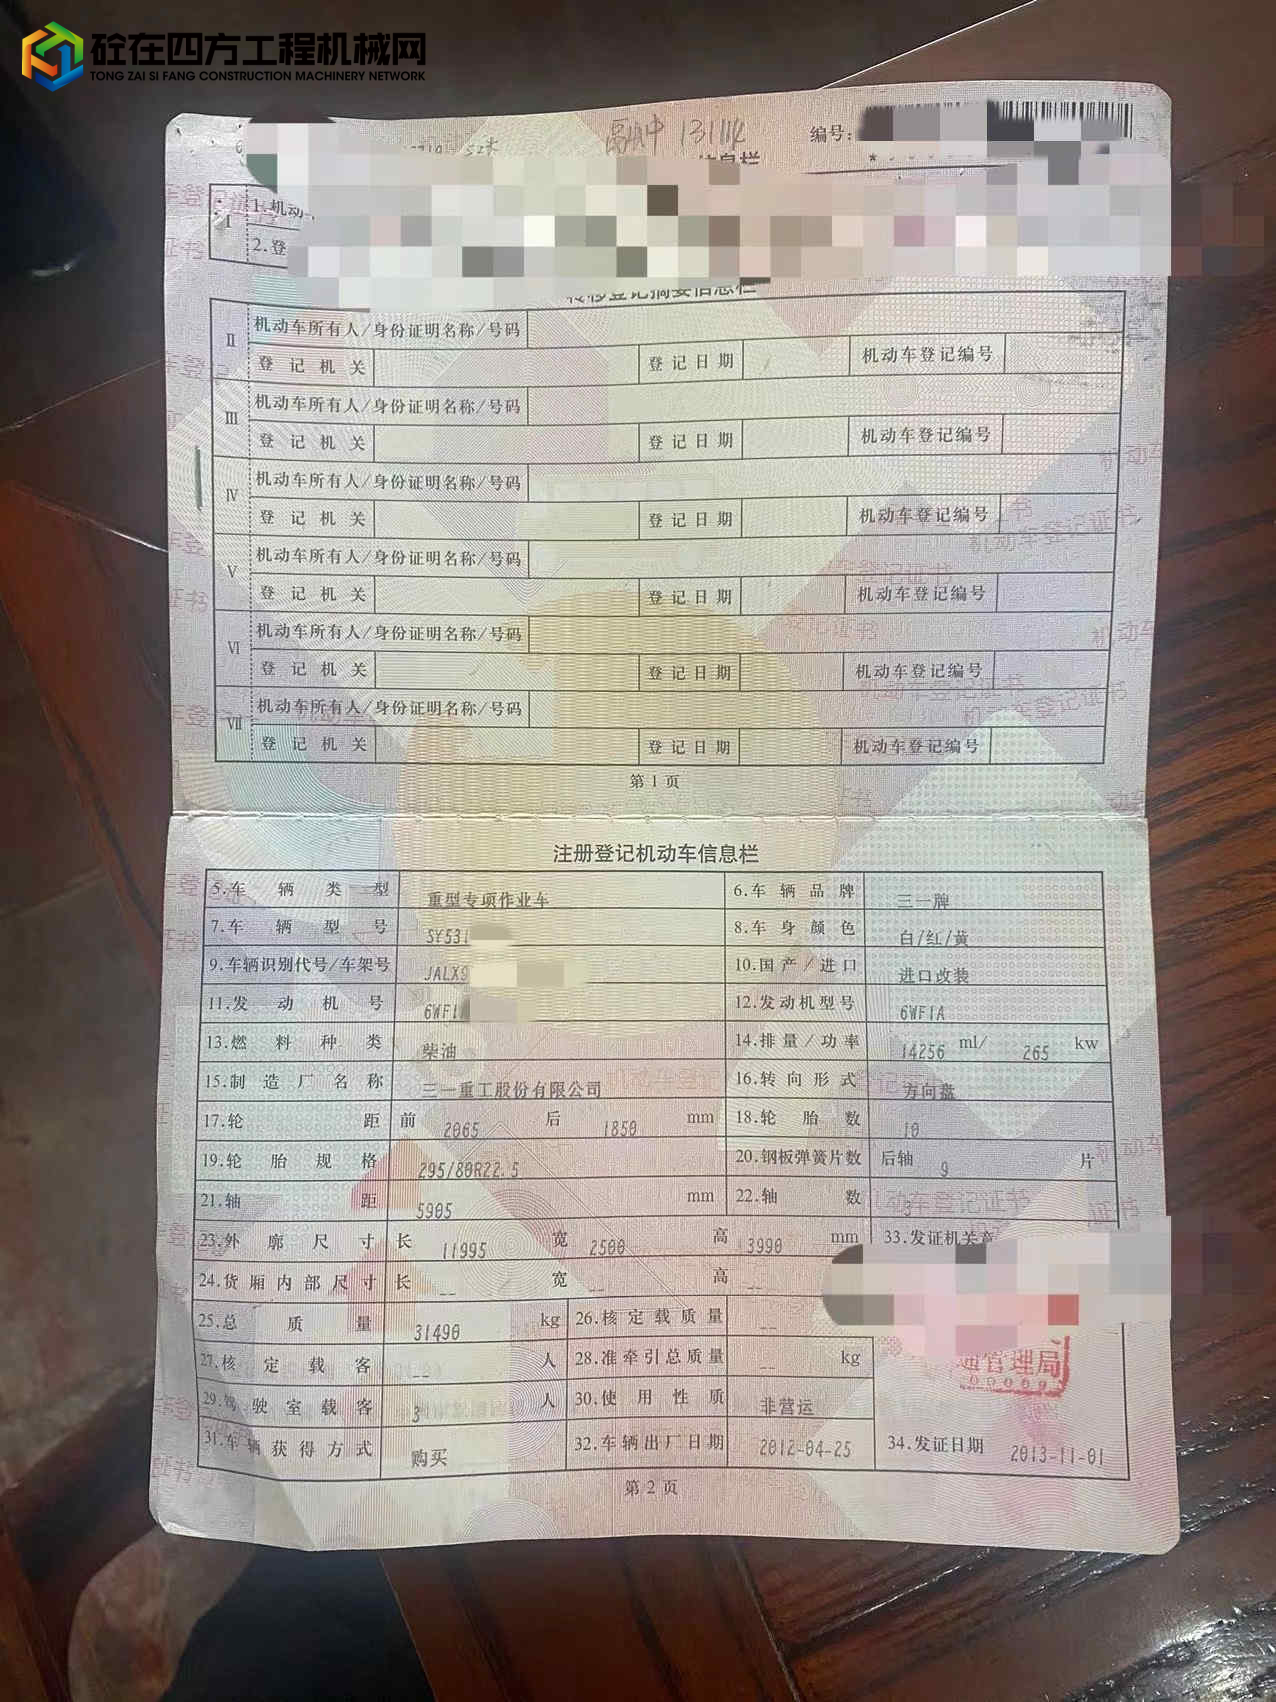 砼在四方工程机械网
TONG ZAI SI FANG CONSTRUCTION MACHINERY NETWORK
131114
编号:
信息栏
I
1.机动
2.登
转移登记摘要信息栏
II 机动车所有人/身份证明名称/号码
登记机关 登记日期 机动车登记编号
III 机动车所有人/身份证明名称/号码
登记机关 登记日期 机动车登记编号
IV 机动车所有人/身份证明名称/号码
登记机关 登记日期 机动车登记编号
V 机动车所有人/身份证明名称/号码
登记机关 登记日期 机动车登记编号
VI 机动车所有人/身份证明名称/号码
登记机关 登记日期 机动车登记编号
VII 机动车所有人/身份证明名称/号码
登记机关 登记日期 机动车登记编号
第1页
注册登记机动车信息栏
5.车辆类型 重型专项作业车 6.车辆品牌 三一牌
7.车辆型号 SY531 8.车身颜色 白/红/黄
9.车辆识别代号/车架号 JALX9 10.国产/进口 进口改装
11.发动机号 6WF1A 12.发动机型号 6WF1A
13.燃料种类 柴油 14.排量/功率 14256 ml/ 265 kw
15.制造厂名称 三一重工股份有限公司 16.转向形式 方向盘
17.轮距 前 2065 后 1850 mm 18.轮胎数 10
19.轮胎规格 295/80R22.5 20.钢板弹簧片数 后轴 9 片
21.轴距 5905 mm 22.轴数 3
23.外廓尺寸 长 11995 宽 2500 高 3990 mm 33.发证机关章
24.货厢内部尺寸 长 -- 宽 -- 高 --
25.总质量 31490 kg 26.核定载质量 --
27.核定载客 -- 人 28.准牵引总质量 -- kg
通管理局
29.驾驶室载客 3 人 30.使用性质 非营运
31.车辆获得方式 购买 32.车辆出厂日期 2012-04-25 34.发证日期 2013-11-01
第2页